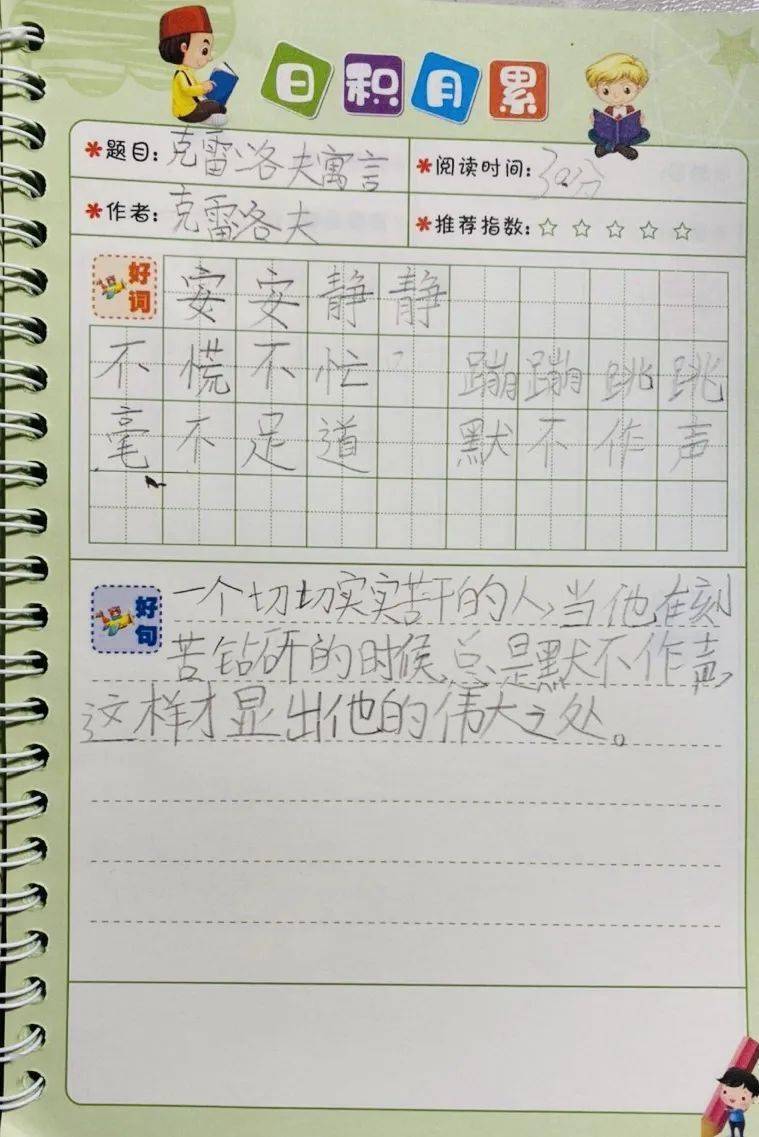 日积月累
题目：克雷洛夫寓言 阅读时间：30分
作者：克雷洛夫 推荐指数：☆☆☆☆☆
好词 安安静静
不慌不忙 蹦蹦跳跳
毫不足道 默不作声
好句 一个切切实实苦干的人，当他在刻
苦钻研的时候，总是默不作声，
这样才显出他的伟大之处。